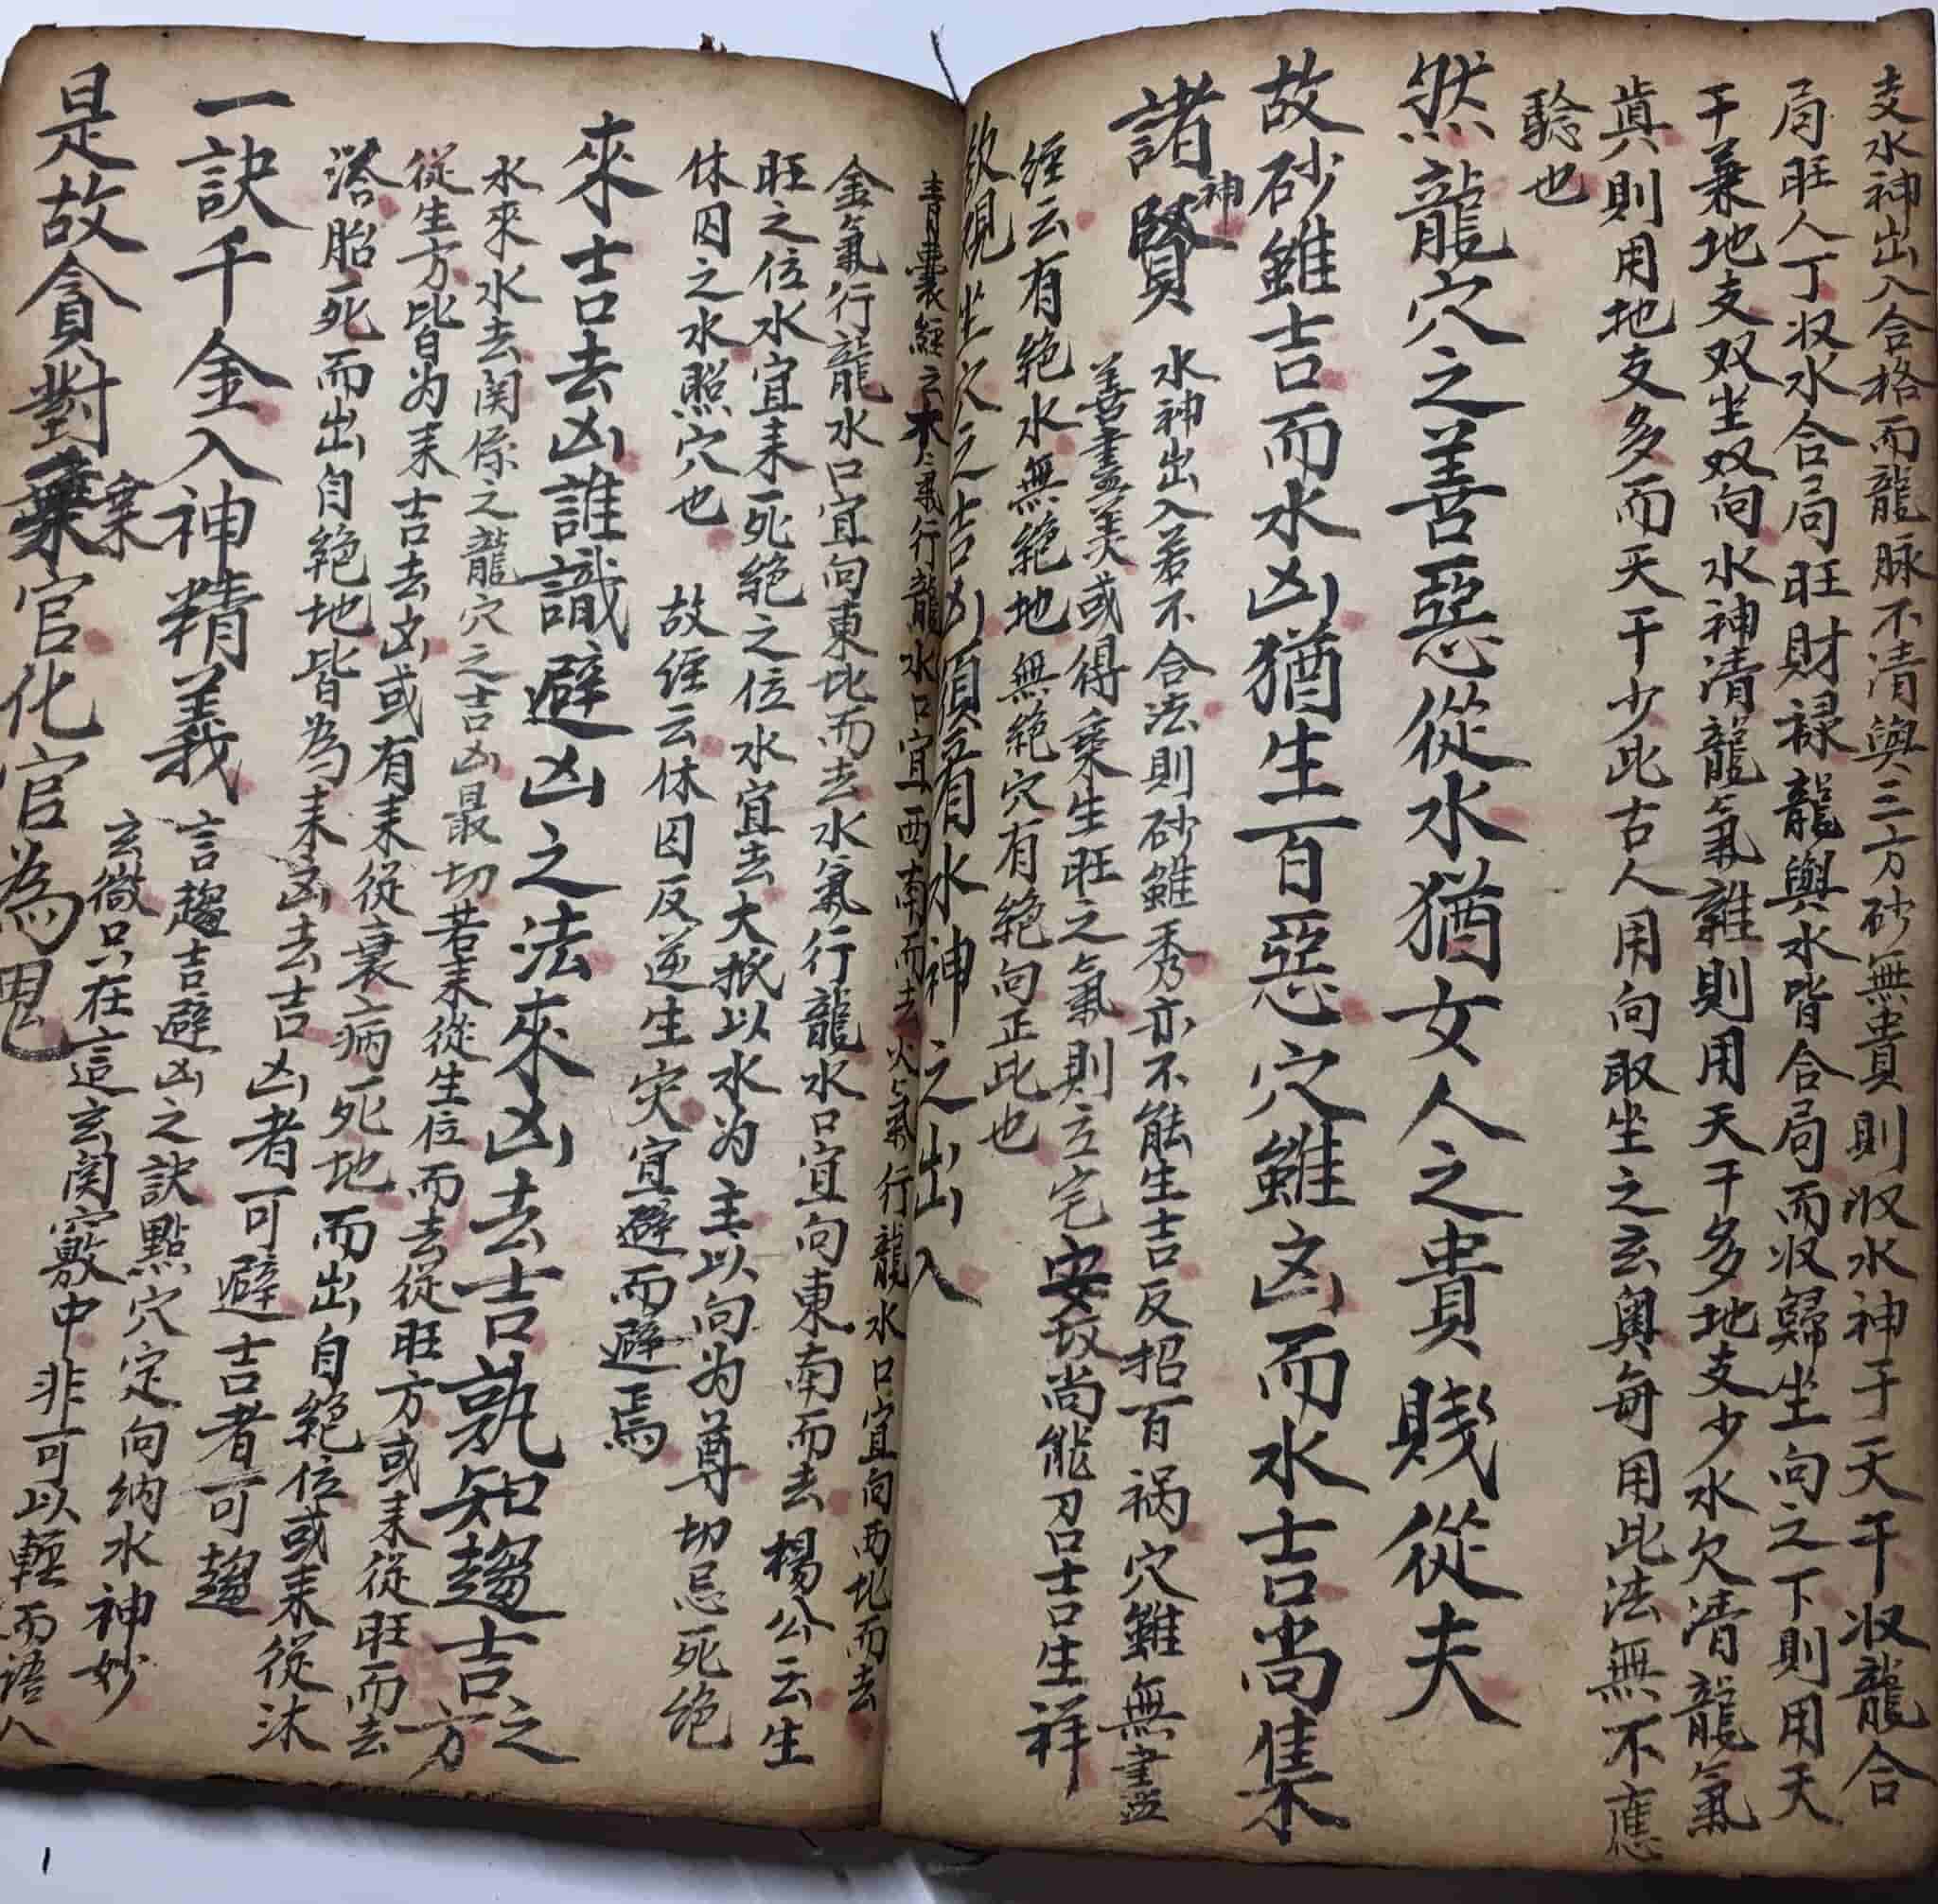 支水神出入合格而龍脉不清與三方砂無貴則収水神于天干収龍合
局旺人丁収水合局旺財禄龍與水皆合局而収歸坐向之下則用天
干兼地支双坐双向水神清龍氣雜則用天干多地支少水欠清龍氣
真則用地支多而天干少此古人用向取坐之玄奧毎用此法無不應
驗也
然龍穴之善惡從水猶女人之貴賤從夫
故砂雖吉而水凶猶生百惡穴雖凶而水吉尚集
諸賢神
水神出入若不合法則砂雖秀亦不能生吉反招百禍穴雖無盡
善盡美或得乗生旺之氣則立宅安坟尚能召吉生祥
經云有絶水無絶地無絶穴有絶向正此也
欲視坐穴之吉凶須看水神之出入
青囊經之木氣行龍水口宜西南而去火氣行龍水口宜向西北而去
金氣行龍水口宜向東北而去水氣行龍水口宜向東南而去楊公云生
旺之位水宜来死絶之位水宜去大抵以水为主以向为尊切忌死绝
休囚之水照穴也故經云休囚反逆生灾宜避而避焉
來吉去凶誰識避凶之法來凶去吉孰知趨吉之方
水來水去関係之龍穴之吉凶最切若来從生位而去從旺方或来從旺而去
從生方皆为来吉去凶或有来從衰病死地而出自絶位或来從沐
浴胎死而出自絶地皆為来凶去吉凶者可避吉者可趨
一訣千金入神精義
言趨吉避凶之訣點穴定向納水神妙
玄微只在這玄関竅中非可以輕而語人
是故貪對棄官化官為鬼